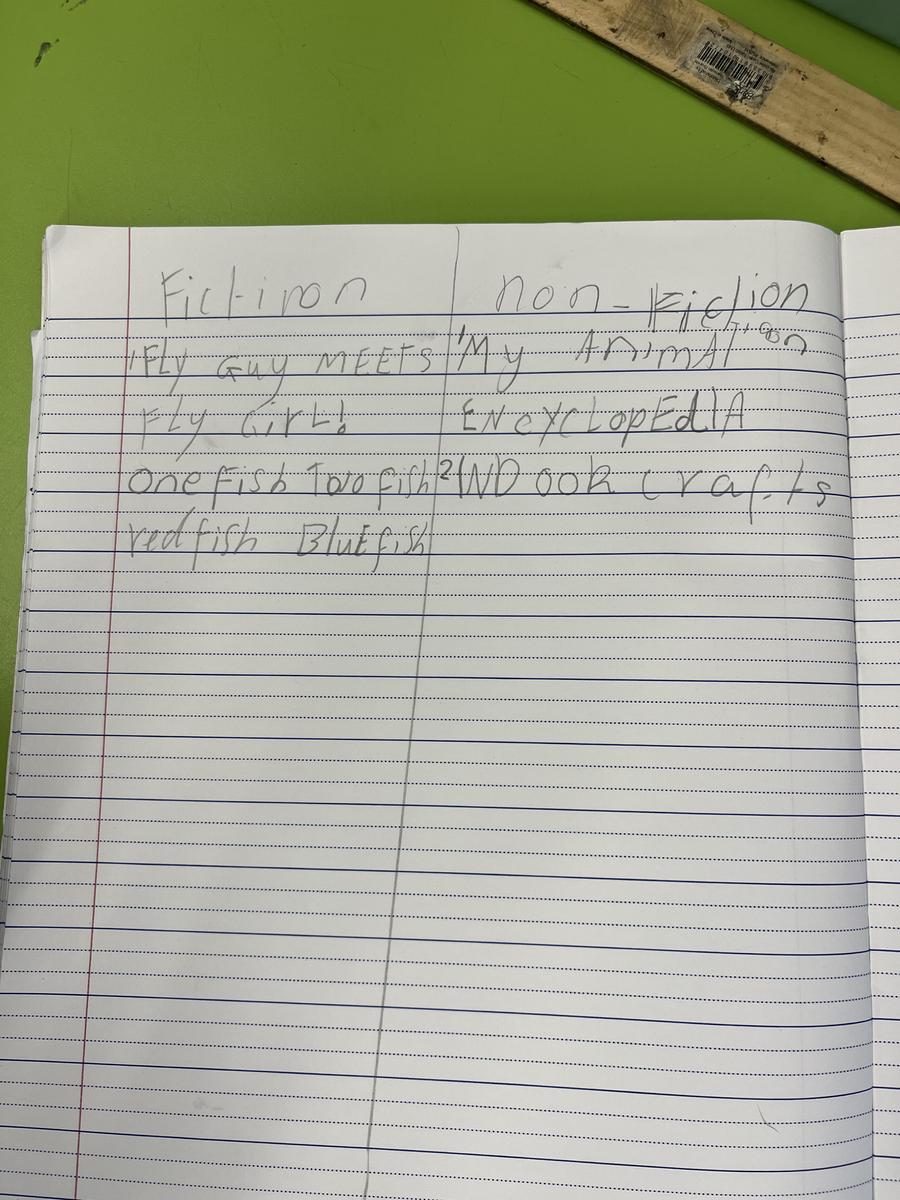 Fict-iron
non-Fiction
'Fly Guy MEETS
Fly GirL!
One Fish Two fish
red fish BluE fish
'My AnimAl
ENcyCLopEdIA
2 INDOOR crafts